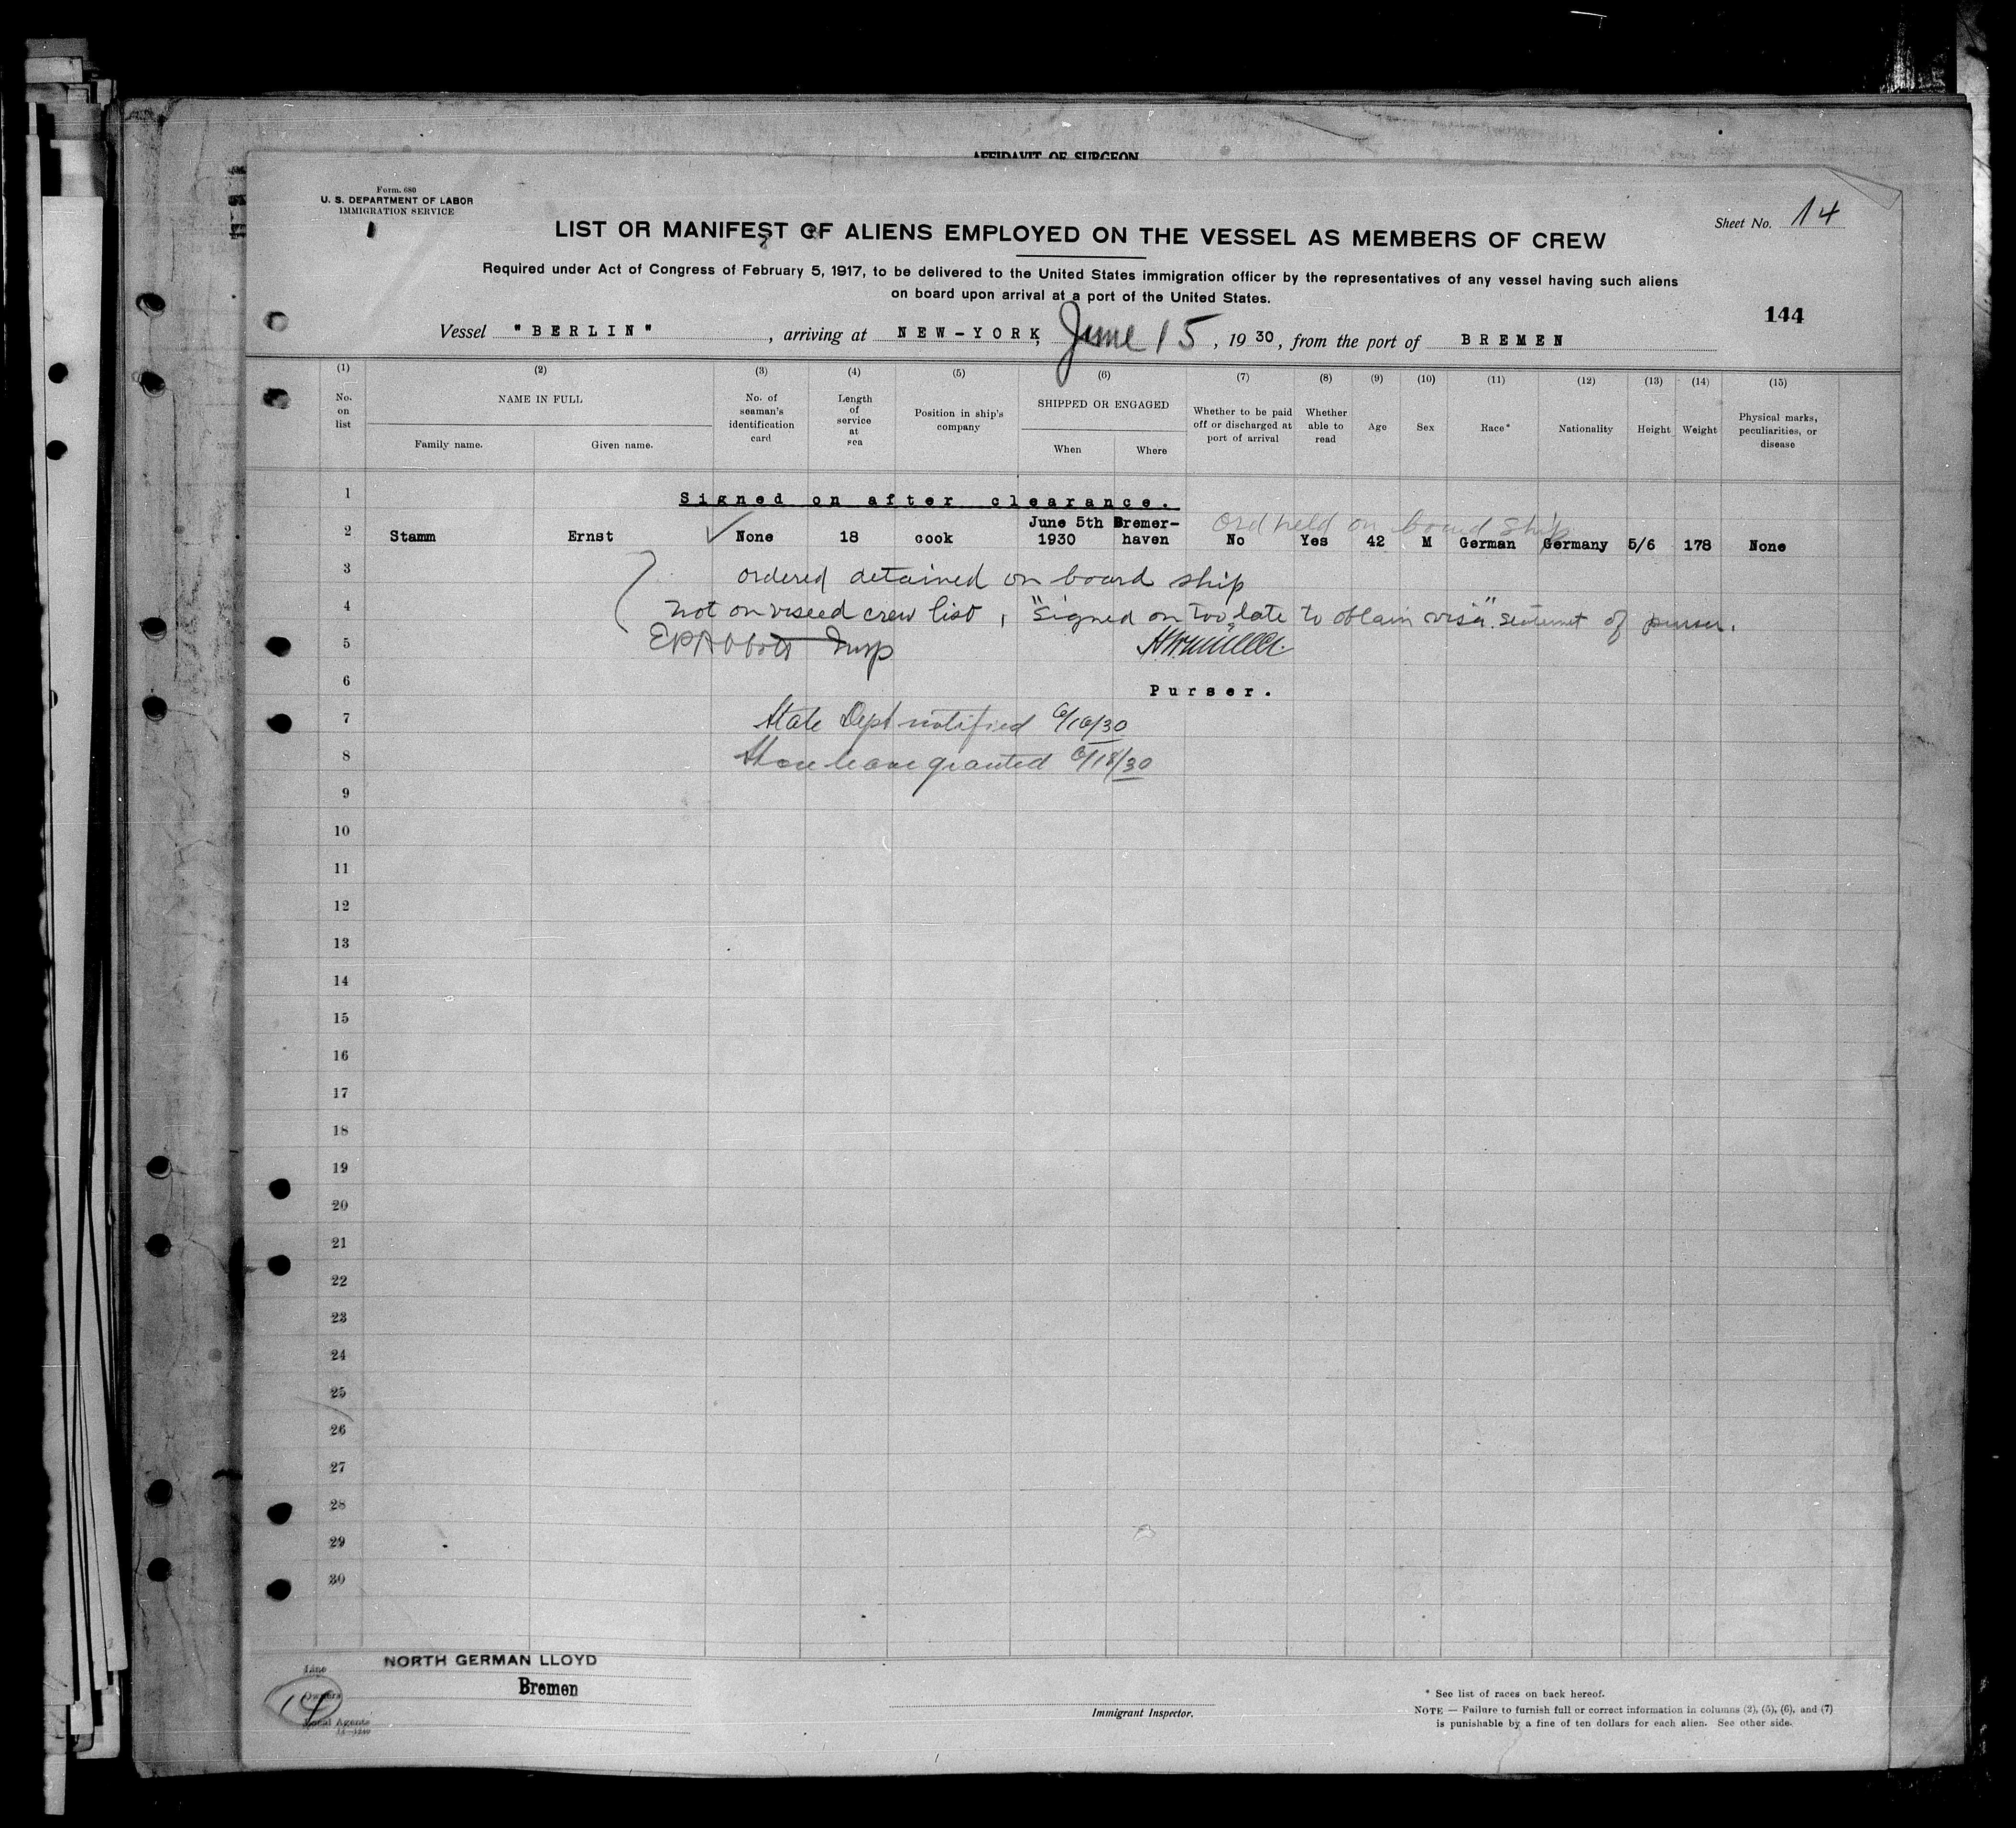 AFFIDAVIT OF SURGEON
Form. 680
U. S. DEPARTMENT OF LABOR
IMMIGRATION SERVICE
Sheet No. 14
LIST OR MANIFEST OF ALIENS EMPLOYED ON THE VESSEL AS MEMBERS OF CREW
Required under Act of Congress of February 5, 1917, to be delivered to the United States immigration officer by the representatives of any vessel having such aliens
on board upon arrival at a port of the United States.
144
Vessel "BERLIN", arriving at NEW-YORK, June 15, 1930, from the port of BREMEN
(1) (2) (3) (4) (5) (6) (7) (8) (9) (10) (11) (12) (13) (14) (15)
No. on list
NAME IN FULL
Family name. Given name.
No. of seaman's identification card
Length of service at sea
Position in ship's company
SHIPPED OR ENGAGED
When Where
Whether to be paid off or discharged at port of arrival
Whether able to read
Age
Sex
Race*
Nationality
Height
Weight
Physical marks, peculiarities, or disease
1 Signed on after clearance.
Ord held on board ship
2 Stamm Ernst None 18 cook June 5th 1930 Bremer-haven No Yes 42 M German Germany 5/6 178 None
3 ordered detained on board ship
4 not on viseed crew list, "signed on too late to obtain visa". statement of purser.
5 EP Abbott Insp
6 Purser.
7 State Dept notified 6/16/30
8 Shore leave granted 6/18/30
9
10
11
12
13
14
15
16
17
18
19
20
21
22
23
24
25
26
27
28
29
30
Line NORTH GERMAN LLOYD
Owners Bremen
Local Agents
14
Immigrant Inspector.
* See list of races on back hereof.
NOTE — Failure to furnish full or correct information in columns (2), (5), (6), and (7)
is punishable by a fine of ten dollars for each alien. See other side.